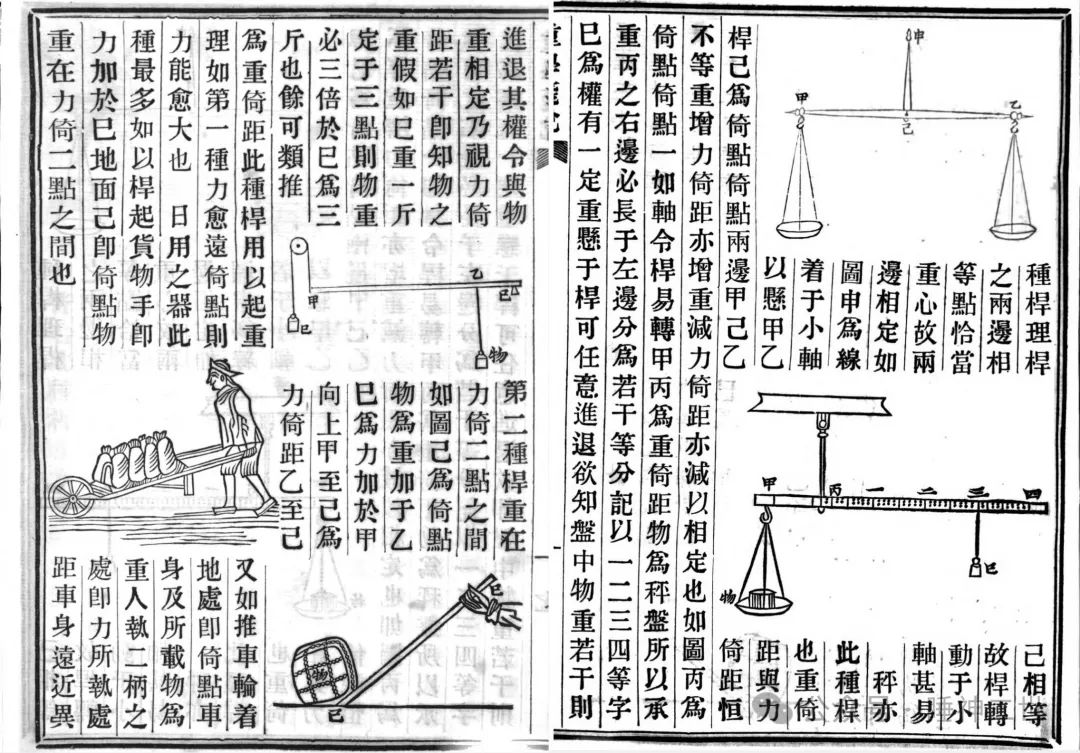 種桿理桿
之兩邊相
等點恰當
重心故兩
邊相定如
圖申爲線
着于小軸
以懸甲乙
桿己爲倚點倚點兩邊甲己乙
己相等
故桿轉
動于小
軸甚易
秤亦
此種桿
也重倚
距與力
倚距恒
不等重增力倚距亦增重減力倚距亦減以相定也如圖丙爲
倚點倚點一如軸令桿易轉甲丙爲重倚距物爲秤盤所以承
重丙之右邊必長于左邊分爲若干等分記以一二三四等字
巳爲權有一定重懸于桿可任意進退欲知盤中物重若干則
申
甲
乙
己
甲
丙
一
二
三
四
巳
物
進退其權令與物
重相定乃視力倚
距若干卽知物之
重假如巳重一斤
定于三點則物重
必三倍於巳爲三
斤也餘可類推
第二種桿重在
力倚二點之間
如圖己爲倚點
物爲重加于乙
巳爲力加於甲
向上甲至己爲
力倚距乙至己
爲重倚距此種桿用以起重
理如第一種力愈遠倚點則
力能愈大也 日用之器此
種最多如以桿起貨物手卽
力加於巳地面己卽倚點物
重在力倚二點之間也
又如推車輪着
地處卽倚點車
身及所載物爲
重人執二柄之
處卽力所執處
距車身遠近異
甲
乙
己
巳
物
巳
物
己